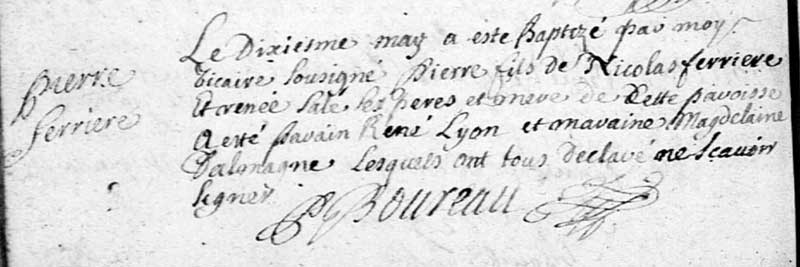 Pierre
ferriere
Le Dixiesme may a este Baptizé par moy
vicaire sousigné Pierre fils de Nicolas ferriere
et renée Salé ses peres et mere de cette paroisse
a esté parain René Lyon et maraine Magdelaine
Dalonagne lesquels ont tous declaré ne scavoir
signer
P Boureau